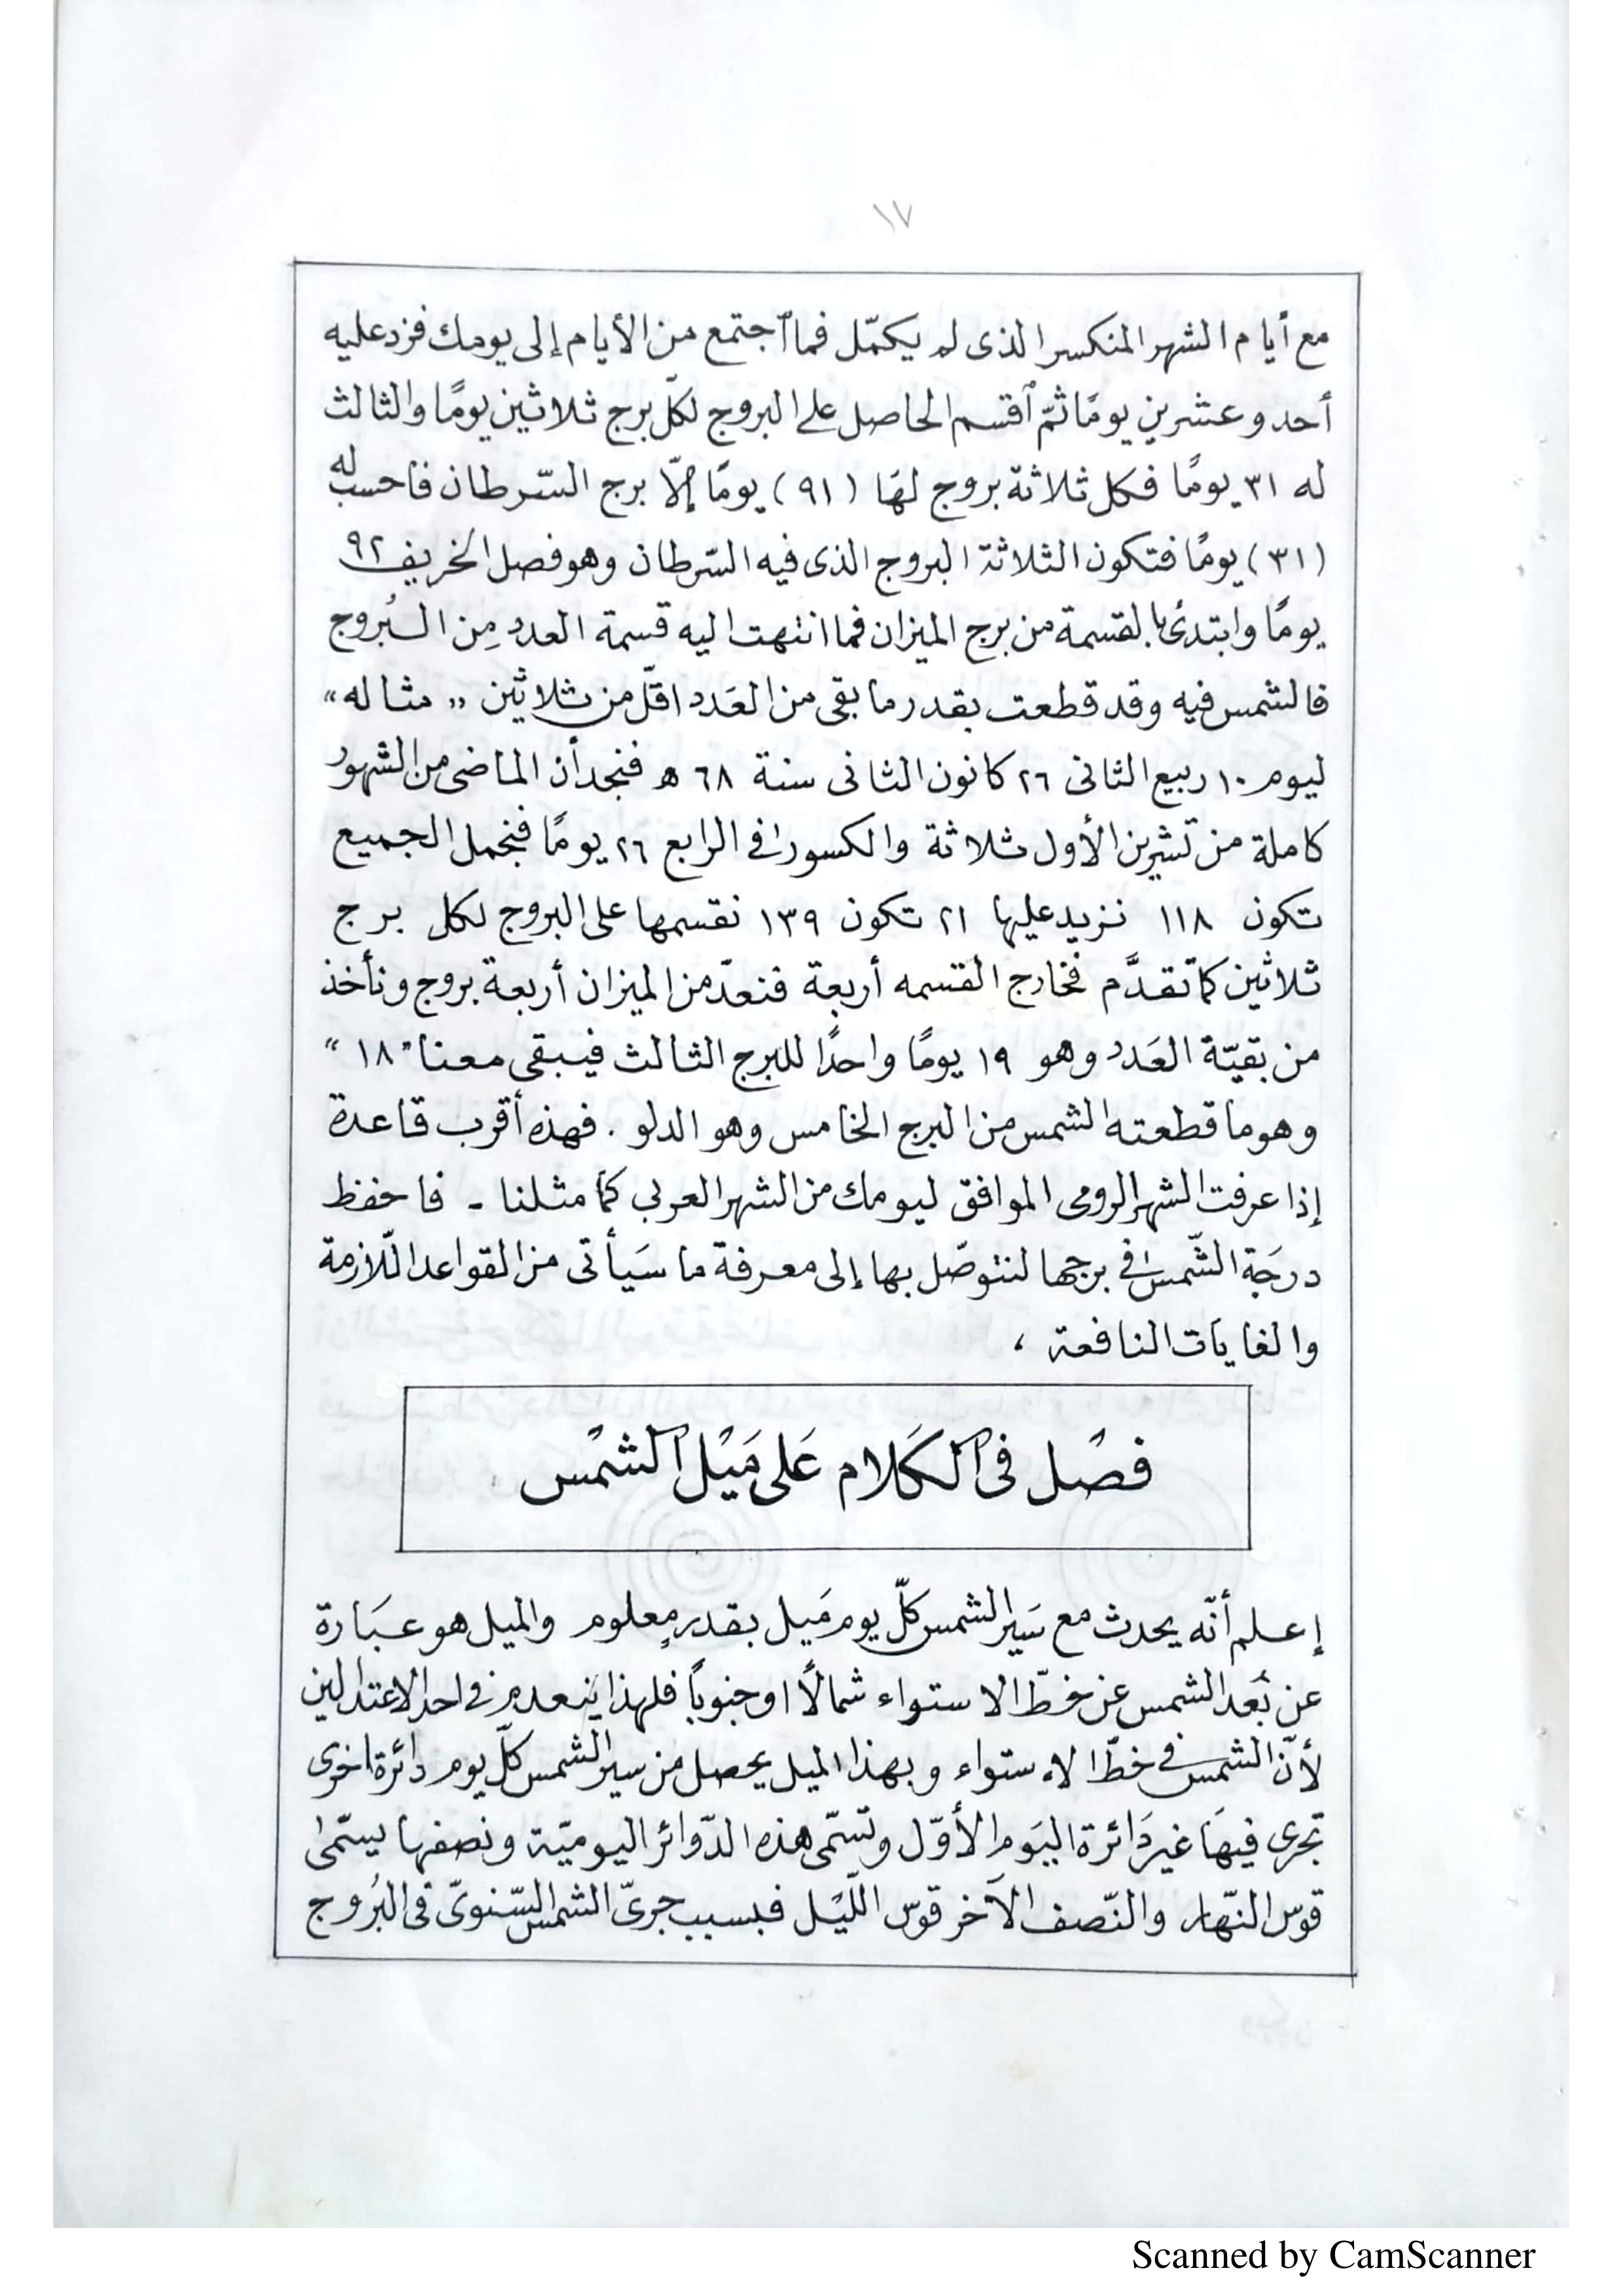 ١٧
مع أيام الشهر المنكسر الذى لم يكمّل فما ٱجتمع من الأيام إلى يومك فزد عليه
أحد وعشرين يومًا ثمّ ٱقسم الحاصل على البروج لكلّ برج ثلاثين يومًا والثالث
له ٣١ يومًا فكل ثلاثة بروج لهَا (٩١) يومًا إلّا برج السّرطان فاحسب له
(٣١) يومًا فتكون الثلاثة البروج الذى فيه السّرطان وهو فصل الخريف ٩٢
يومًا وابتدئ بالقسمة من برج الميزان فما انتهت اليه قسمة العدد مِن البُروج
فالشمس فيه وقد قطعت بقدر ما بقى من العَدد اقلّ من ثلاثين „ مثاله “
ليوم ١٠ ربيع الثانى ٢٦ كانون الثانى سنة ٦٨ ه فنجد أن الماضى من الشهور
كاملة من تشرين الأول ثلاثة والكسور فى الرابع ٢٦ يومًا فنجمل الجميع
تكون ١١٨ نزيد عليها ٢١ تكون ١٣٩ نقسمها على البروج لكل برج
ثلاثين كما تقدَّم فخارج القسمه أربعة فنعدّ من الميزان أربعة بروج ونأخذ
من بقيّة العَدد وهو ١٩ يومًا واحدًا للبرج الثالث فيبقى معنا " ١٨ “
وهو ما قطعته الشمس من البرج الخامس وهو الدلو . فهذه أقرب قاعدة
إذا عرفت الشهر الرومى الموافق ليومك من الشهر العربى كما مثلنا - فاحفظ
درجَة الشّمس فى برجها لنتوصّل بها إلى معرفة ما سَيأتى من القواعد اللّازمة
والغايات النافعة ،
فصْل فى ٱلكَلام عَلى مَيْل ٱلشمْس
إعلم أنّه يحدث مع سَير الشمس كلّ يوم مَيل بقدرٍ معلوم والميل هو عبَارة
عن بُعد الشمس عن خطّ الاستواء شمالًا او جنوبًا فلهذا ينعدم فى احد الاعتدالين
لأنّ الشمس فى خطّ الاستواء وبهذا الميل يحصل من سير الشمس كلّ يوم دائرة اخرى
تجرى فيهَا غير دَائرة اليَوم الأوّل وتسمّى هذه الدّوائر اليوميّة ونصفها يسمّىٰ
قوس النّهار والنّصف الآخر قوس اللّيْل فبسبب جرىّ الشمس السّنوىّ فى البُروج
Scanned by CamScanner